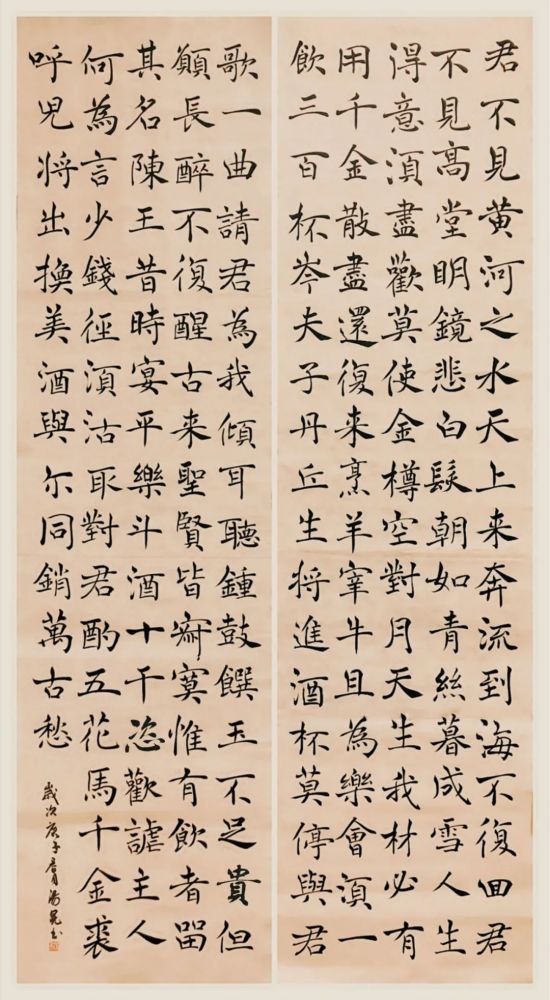 君不見黄河之水天上来奔流到海不復回君
不見高堂明鏡悲白髮朝如青絲暮成雪人生
得意湏盡歡莫使金樽空對月天生我材必有
用千金散盡還復来烹羊宰牛且為樂會湏一
飲三百杯岑夫子丹丘生将進酒杯莫停與君
歌一曲請君為我傾耳聽鍾鼓饌玉不足貴但
願長醉不復醒古来聖賢皆寂寞惟有飲者留
其名陳王昔時宴平樂斗酒十千恣歡謔主人
何為言少錢徑湏沽取對君酌五花馬千金裘
呼兒将出換美酒與尓同銷萬古愁
歲次庚子